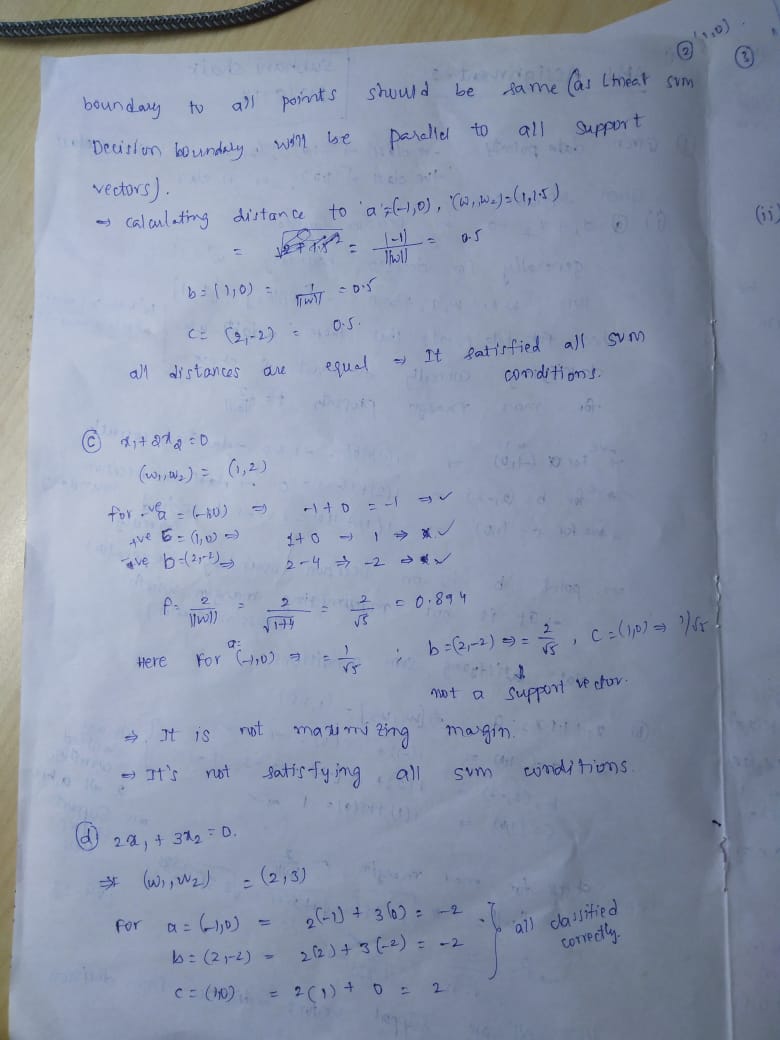 ② (1,0)
③
boundary to all points should be same (as linear svm
Decision boundary will be parallel to all support
vectors).
→ calculating distance to 'a'=(-1,0), (w₁,w₂)=(1,1.5)
= = |-1| / ||w|| = 0.5
b = (1,0) = 1/||w|| = 0.5
c = (2,-2) = 0.5.
all distances are equal → It satisfied all svm
conditions.
(ii)
ⓒ x₁+2x₂=0
(w₁,w₂) = (1,2)
for -ve a = (-1,0) ⇒ -1+0 = -1 ⇒ ✓
+ve = (1,0) ⇒ 1+0 → 1 ⇒ ✓
-ve b=(2,-2) ⇒ 2-4 ⇒ -2 ⇒ ✓
ρ = 2/||w|| = 2/√(1+4) = 2/√5 = 0.894
Here For a: (-1,0) ⇒ = 1/√5 ; b=(2,-2) ⇒ = 2/√5 , c=(1,0) ⇒ 1/√5
↓
not a support vector.
⇒ It is not maximizing margin.
⇒ It's not satisfying all svm conditions.
ⓓ 2x₁ + 3x₂ = 0.
⇒ (w₁,w₂) = (2,3)
For a = (-1,0) = 2(-1) + 3(0) = -2
b = (2,-2) = 2(2) + 3(-2) = -2 } all classified
correctly.
c = (1,0) = 2(1) + 0 = 2